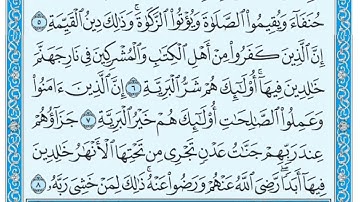 حُنَفَآءَ وَيُقِيمُوا۟ ٱلصَّلَوٰةَ وَيُؤْتُوا۟ ٱلزَّكَوٰةَ ۚ وَذَٰلِكَ دِينُ ٱلْقَيِّمَةِ ٥
إِنَّ ٱلَّذِينَ كَفَرُوا۟ مِنْ أَهْلِ ٱلْكِتَٰبِ وَٱلْمُشْرِكِينَ فِى نَارِ جَهَنَّمَ
خَٰلِدِينَ فِيهَآ ۚ أُو۟لَٰٓئِكَ هُمْ شَرُّ ٱلْبَرِيَّةِ ٦ إِنَّ ٱلَّذِينَ ءَامَنُوا۟
وَعَمِلُوا۟ ٱلصَّٰلِحَٰتِ أُو۟لَٰٓئِكَ هُمْ خَيْرُ ٱلْبَرِيَّةِ ٧ جَزَآؤُهُمْ
عِندَ رَبِّهِمْ جَنَّٰتُ عَدْنٍ تَجْرِى مِن تَحْتِهَا ٱلْأَنْهَٰرُ خَٰلِدِينَ
فِيهَآ أَبَدًا ۖ رَّضِىَ ٱللَّهُ عَنْهُمْ وَرَضُوا۟ عَنْهُ ۚ ذَٰلِكَ لِمَنْ خَشِىَ رَبَّهُۥ ٨